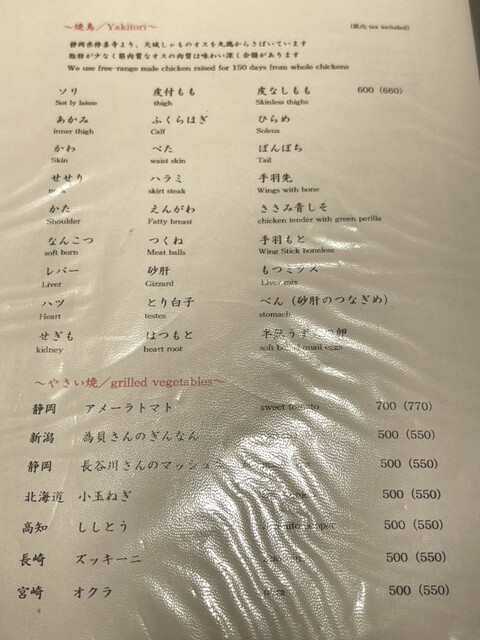 ～焼鳥／Yakitori～ (税込 tax included)
静岡県修善寺より、天城しゃものオスを丸鶏からさばいています
脂肪が少なく筋肉質なオスの肉質は味わい深く余韻があります
We use free-range male chicken raised for 150 days from whole chickens
ソリ 皮付もも 皮なしもも 600 (660)
Sot ly laisse thigh Skinless thighs
あかみ ふくらはぎ ひらめ
inner thigh Calf Soleus
かわ べた ぼんぼち
Skin waist skin Tail
せせり ハラミ 手羽先
skirt steak Wings with bone
かた えんがわ ささみ青しそ
Shoulder Fatty breast chicken tender with green perilla
なんこつ つくね 手羽もと
soft born Meat balls Wing Stick boneless
レバー 砂肝 もつミックス
Liver Gizzard Liver mix
ハツ とり白子 べん（砂肝のつなぎめ）
Heart testes stomach
せぎも はつもと 半熟うずらの卵
kidney heart root soft boiled quail eggs
～やさい焼／grilled vegetables～
静岡 アメーラトマト sweet tomato 700 (770)
新潟 為貝さんのぎんなん 500 (550)
静岡 長谷川さんのマッシュ 500 (550)
北海道 小玉ねぎ 500 (550)
高知 ししとう pepper 500 (550)
長崎 ズッキーニ 500 (550)
宮崎 オクラ 500 (550)